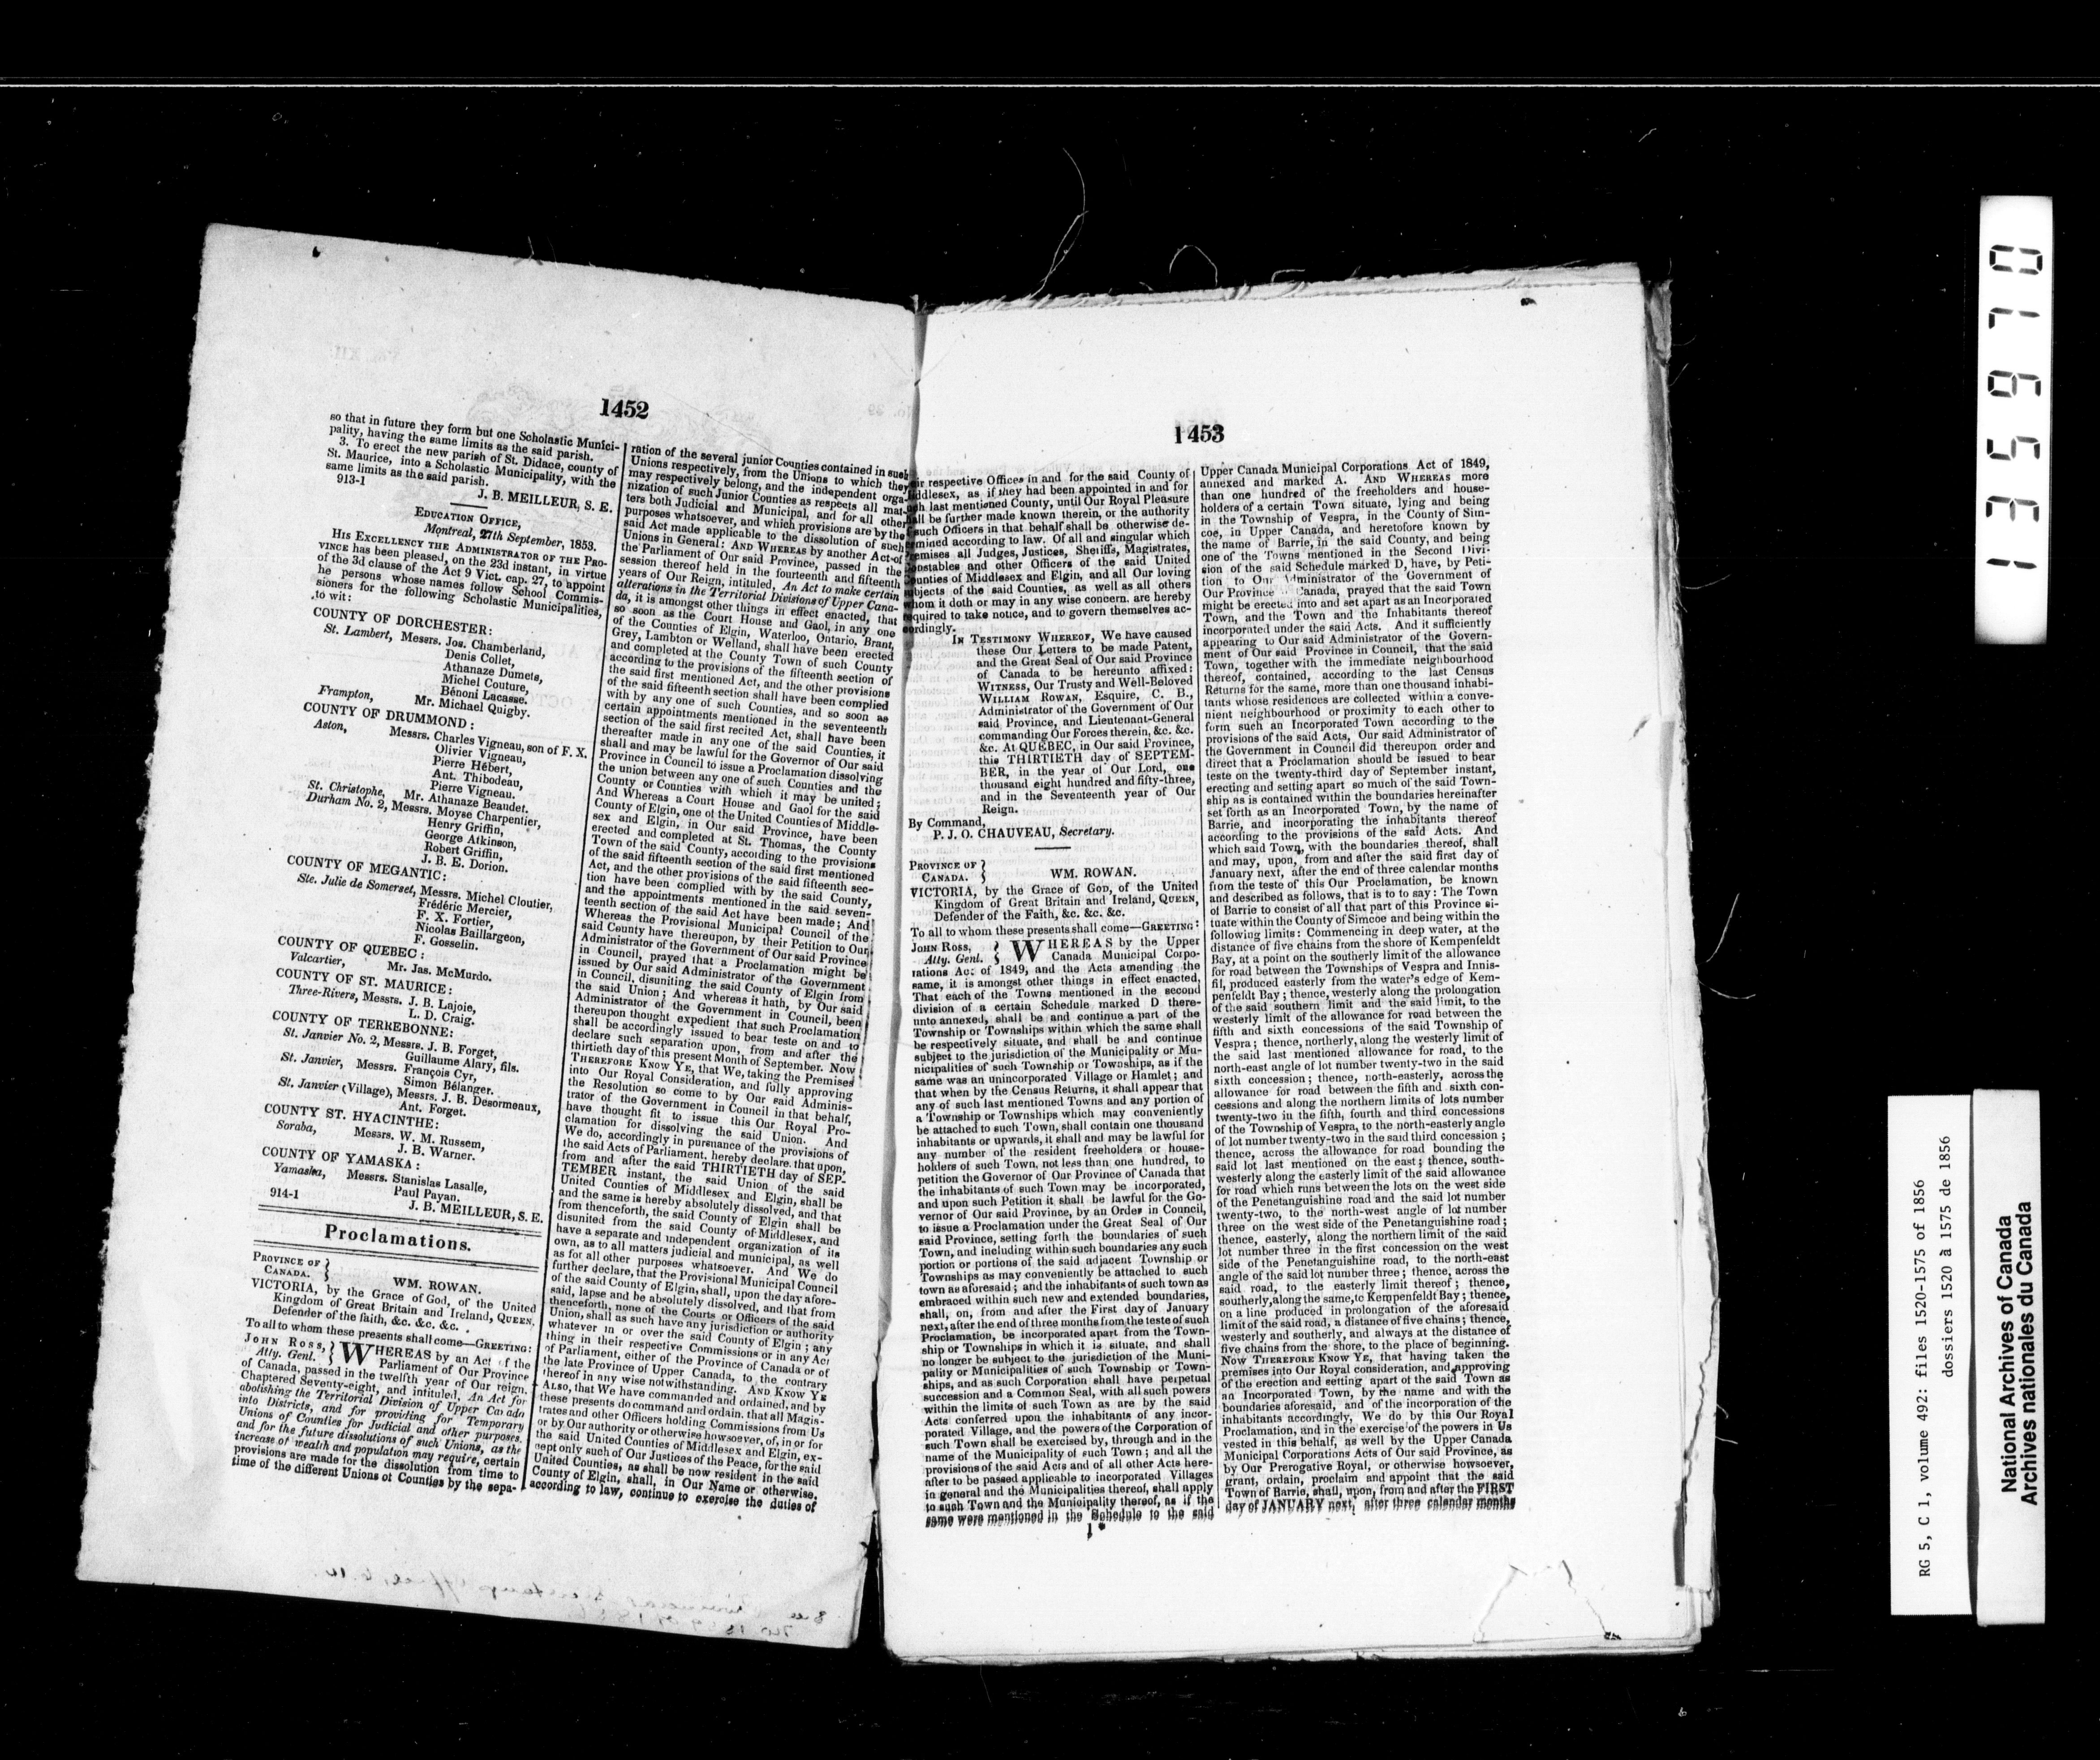 1452
so that in future they form but one Scholastic Munici-
pality, having the same limits as the said parish.
3. To erect the new parish of St. Didace, county of
St. Maurice, into a Scholastic Municipality, with the
same limits as the said parish.
913-1
J. B. MEILLEUR, S. E.
EDUCATION OFFICE,
Montreal, 27th September, 1853.
HIS EXCELLENCY THE ADMINISTRATOR OF THE PRO-
VINCE has been pleased, on the 23d instant, in virtue
of the 3d clause of the Act 9 Vict. cap. 27, to appoint
he persons whose names follow School Commis-
sioners for the following Scholastic Municipalities,
to wit:
COUNTY OF DORCHESTER:
St. Lambert, Messrs. Jos. Chamberland,
Denis Collet,
Athanaze Dumets,
Michel Couture,
Bénoni Lacasse.
Frampton, Mr. Michael Quigby.
COUNTY OF DRUMMOND:
Aston, Messrs. Charles Vigneau, son of F. X.
Olivier Vigneau,
Pierre Hébert,
Ant. Thibodeau,
Pierre Vigneau.
St. Christophe, Mr. Athanaze Beaudet.
Durham No. 2, Messrs. Moyse Charpentier,
Henry Griffin,
George Atkinson,
Robert Griffin,
J. B. E. Dorion.
COUNTY OF MEGANTIC:
Ste. Julie de Somerset, Messrs. Michel Cloutier,
Frédéric Mercier,
F. X. Fortier,
Nicolas Baillargeon,
F. Gosselin.
COUNTY OF QUEBEC:
Valcartier, Mr. Jas. McMurdo.
COUNTY OF ST. MAURICE:
Three-Rivers, Messrs. J. B. Lajoie,
L. D. Craig.
COUNTY OF TERREBONNE:
St. Janvier No. 2, Messrs. J. B. Forget,
Guillaume Alary, fils.
St. Janvier, Messrs. François Cyr,
Simon Bélanger.
St. Janvier (Village), Messrs. J. B. Desormeaux,
Ant. Forget.
COUNTY ST. HYACINTHE:
Soraba, Messrs. W. M. Russem,
J. B. Warner.
COUNTY OF YAMASKA:
Yamaska, Messrs. Stanislas Lasalle,
Paul Payan.
914-1
J. B. MEILLEUR, S. E.
Proclamations.
PROVINCE OF
CANADA.
WM. ROWAN.
VICTORIA, by the Grace of God, of the United
Kingdom of Great Britain and Ireland, QUEEN,
Defender of the faith, &c. &c. &c.
To all to whom these presents shall come—GREETING:
JOHN ROSS, Atty. Genl. WHEREAS by an Act of the
Parliament of Our Province
of Canada, passed in the twelfth year of Our reign,
Chaptered Seventy-eight, and intituled, An Act for
abolishing the Territorial Division of Upper Canada
into Districts, and for providing for Temporary
Unions of Counties for Judicial and other purposes,
and for the future dissolutions of such Unions, as the
increase of wealth and population may require, certain
provisions are made for the dissolution from time to
time of the different Unions of Counties by the sepa-
ration of the several junior Counties contained in such
Unions respectively, from the Unions to which they
may respectively belong, and the independent orga-
nization of such Junior Counties as respects all mat-
ters both Judicial and Municipal, and for all other
purposes whatsoever, and which provisions are by the
said Act made applicable to the dissolution of such
Unions in General: AND WHEREAS by another Act of
the Parliament of Our said Province, passed in the
session thereof held in the fourteenth and fifteenth
years of Our Reign, intituled, An Act to make certain
alterations in the Territorial Divisions of Upper Cana-
da, it is amongst other things in effect enacted, that
so soon as the Court House and Gaol, in any one
of the Counties of Elgin, Waterloo, Ontario, Brant,
Grey, Lambton or Welland, shall have been erected
and completed at the County Town of such County
according to the provisions of the fifteenth section of
the said first mentioned Act, and the other provisions
of the said fifteenth section shall have been complied
with by any one of such Counties, and so soon as
certain appointments mentioned in the seventeenth
section of the said first recited Act, shall have been
thereafter made in any one of the said Counties, it
shall and may be lawful for the Governor of Our said
Province in Council to issue a Proclamation dissolving
the union between any one of such Counties and the
County or Counties with which it may be united;
And Whereas a Court House and Gaol for the said
County of Elgin, one of the United Counties of Middle-
sex and Elgin, in Our said Province, have been
erected and completed at St. Thomas, the County
Town of the said County, according to the provisions
of the said fifteenth section of the said first mentioned
Act, and the other provisions of the said fifteenth sec-
tion have been complied with by the said County,
and the appointments mentioned in the said seven-
teenth section of the said Act have been made; And
Whereas the Provisional Municipal Council of the
said County have thereupon, by their Petition to Our
Administrator of the Government of Our said Province
in Council, prayed that a Proclamation might be
issued by Our said Administrator of the Government
in Council, disuniting the said County of Elgin from
the said Union; And whereas it hath, by Our said
Administrator of the Government in Council, been
thereupon thought expedient that such Proclamation
shall be accordingly issued to bear teste on and to
declare such separation upon, from and after the
thirtieth day of this present Month of September. Now
THEREFORE KNOW YE, that We, taking the Premises
into Our Royal Consideration, and fully approving
the Resolution so come to by Our said Adminis-
trator of the Government in Council in that behalf,
have thought fit to issue this Our Royal Pro-
clamation for dissolving the said Union. And
We do, accordingly in pursuance of the provisions of
the said Acts of Parliament, hereby declare, that upon,
from and after the said THIRTIETH day of SEP-
TEMBER instant, the said Union of the said
United Counties of Middlesex and Elgin, shall be
and the same is hereby absolutely dissolved, and that
from thenceforth, the said County of Elgin shall be
disunited from the said County of Middlesex, and
have a separate and independent organization of its
own, as to all matters judicial and municipal, as well
as for all other purposes whatsoever. And We do
further declare, that the Provisional Municipal Council
of the said County of Elgin, shall, upon the day afore-
said, lapse and be absolutely dissolved, and that from
thenceforth, none of the Courts or Officers of the said
Union, shall as such have any jurisdiction or authority
whatever in or over the said County of Elgin; any
thing in their respective Commissions or in any Act
of Parliament, either of the Province of Canada or of
the late Province of Upper Canada, to the contrary
thereof in any wise notwithstanding. AND KNOW YE
ALSO, that We have commanded and ordained, and by
these presents do command and ordain, that all Magis-
trates and other Officers holding Commissions from Us
or by Our authority or otherwise howsoever, of, in or for
the said United Counties of Middlesex and Elgin, ex-
cept only such of Our Justices of the Peace, for the said
United Counties, as shall be now resident in the said
County of Elgin, shall, in Our Name or otherwise,
according to law, continue to exercise the duties of
1453
respective Offices in and for the said County of
as if they had been appointed in and for
last mentioned County, until Our Royal Pleasure
be further made known therein, or the authority
such Officers in that behalf shall be otherwise de-
according to law. Of all and singular which
all Judges, Justices, Sheriffs, Magistrates,
and other Officers of the said United
of Middlesex and Elgin, and all Our loving
of the said Counties, as well as all others
whom it doth or may in any wise concern, are hereby
required to take notice, and to govern themselves ac-
cordingly.
IN TESTIMONY WHEREOF, We have caused
these Our Letters to be made Patent,
and the Great Seal of Our said Province
of Canada to be hereunto affixed:
WITNESS, Our Trusty and Well-Beloved
WILLIAM ROWAN, Esquire, C. B.,
Administrator of the Government of Our
said Province, and Lieutenant-General
commanding Our Forces therein, &c. &c.
&c. At QUEBEC, in Our said Province,
this THIRTIETH day of SEPTEM-
BER, in the year of Our Lord, one
thousand eight hundred and fifty-three,
and in the Seventeenth year of Our
Reign.
By Command,
P. J. O. CHAUVEAU, Secretary.
PROVINCE OF
CANADA.
WM. ROWAN.
VICTORIA, by the Grace of GOD, of the United
Kingdom of Great Britain and Ireland, QUEEN,
Defender of the Faith, &c. &c. &c.
To all to whom these presents shall come—GREETING:
JOHN ROSS, Atty. Genl. WHEREAS by the Upper
Canada Municipal Corpo-
rations Act of 1849, and the Acts amending the
same, it is amongst other things in effect enacted,
That each of the Towns mentioned in the second
division of a certain Schedule marked D there-
unto annexed, shall be and continue a part of the
Township or Townships within which the same shall
be respectively situate, and shall be and continue
subject to the jurisdiction of the Municipality or Mu-
nicipalities of such Township or Townships, as if the
same was an unincorporated Village or Hamlet; and
that when by the Census Returns, it shall appear that
any of such last mentioned Towns and any portion of
a Township or Townships which may conveniently
be attached to such Town, shall contain one thousand
inhabitants or upwards, it shall and may be lawful for
any number of the resident freeholders or house-
holders of such Town, not less than one hundred, to
petition the Governor of Our Province of Canada that
the inhabitants of such Town may be incorporated,
and upon such Petition it shall be lawful for the Go-
vernor of Our said Province, by an Order in Council,
to issue a Proclamation under the Great Seal of Our
said Province, setting forth the boundaries of such
Town, and including within such boundaries any such
portion or portions of the said adjacent Township or
Townships as may conveniently be attached to such
town as aforesaid; and the inhabitants of such town as
embraced within such new and extended boundaries,
shall, on, from and after the First day of January
next, after the end of three months from the teste of such
Proclamation, be incorporated apart from the Town-
ship or Townships in which it is situate, and shall
no longer be subject to the jurisdiction of the Muni-
pality or Municipalities of such Township or Town-
ships, and as such Corporation shall have perpetual
succession and a Common Seal, with all such powers
within the limits of such Town as are by the said
Acts conferred upon the inhabitants of any incor-
porated Village, and the powers of the Corporation of
such Town shall be exercised by, through and in the
name of the Municipality of such Town; and all the
provisions of the said Acts and of all other Acts here-
after to be passed applicable to incorporated Villages
in general and the Municipalities thereof, shall apply
to such Town and the Municipality thereof, as if the
same were mentioned in the Schedule to the said
1*
Upper Canada Municipal Corporations Act of 1849,
annexed and marked A. AND WHEREAS more
than one hundred of the freeholders and house-
holders of a certain Town situate, lying and being
in the Township of Vespra, in the County of Sim-
coe, in Upper Canada, and heretofore known by
the name of Barrie, in the said County, and being
one of the Towns mentioned in the Second Divi-
sion of the said Schedule marked D, have, by Peti-
tion to Our Administrator of the Government of
Our Province Canada, prayed that the said Town
might be erected into and set apart as an Incorporated
Town, and the Town and the Inhabitants thereof
incorporated under the said Acts. And it sufficiently
appearing to Our said Administrator of the Govern-
ment of Our said Province in Council, that the said
Town, together with the immediate neighbourhood
thereof, contained, according to the last Census
Returns for the same, more than one thousand inhabi-
tants whose residences are collected within a conve-
nient neighbourhood or proximity to each other to
form such an Incorporated Town according to the
provisions of the said Acts, Our said Administrator of
the Government in Council did thereupon order and
direct that a Proclamation should be issued to bear
teste on the twenty-third day of September instant,
erecting and setting apart so much of the said Town-
ship as is contained within the boundaries hereinafter
set forth as an Incorporated Town, by the name of
Barrie, and incorporating the inhabitants thereof
according to the provisions of the said Acts. And
which said Town, with the boundaries thereof, shall
and may, upon, from and after the said first day of
January next, after the end of three calendar months
from the teste of this Our Proclamation, be known
and described as follows, that is to to say: The Town
of Barrie to consist of all that part of this Province si-
tuate within the County of Simcoe and being within the
following limits: Commencing in deep water, at the
distance of five chains from the shore of Kempenfeldt
Bay, at a point on the southerly limit of the allowance
for road between the Townships of Vespra and Innis-
fil, produced easterly from the water's edge of Kem-
penfeldt Bay; thence, westerly along the prolongation
of the said southern limit and the said limit, to the
westerly limit of the allowance for road between the
fifth and sixth concessions of the said Township of
Vespra; thence, northerly, along the westerly limit of
the said last mentioned allowance for road, to the
north-east angle of lot number twenty-two in the said
sixth concession; thence, north-easterly, across the
allowance for road between the fifth and sixth con-
cessions and along the northern limits of lots number
twenty-two in the fifth, fourth and third concessions
of the Township of Vespra, to the north-easterly angle
of lot number twenty-two in the said third concession;
thence, across the allowance for road bounding the
said lot last mentioned on the east; thence, south-
westerly along the easterly limit of the said allowance
for road which runs between the lots on the west side
of the Penetanguishine road and the said lot number
twenty-two, to the north-west angle of lot number
three on the west side of the Penetanguishine road;
thence, easterly, along the northern limit of the said
lot number three in the first concession on the west
side of the Penetanguishine road, to the north-east
angle of the said lot number three; thence, across the
said road, to the easterly limit thereof; thence,
southerly, along the same, to Kempenfeldt Bay; thence,
on a line produced in prolongation of the aforesaid
limit of the said road, a distance of five chains; thence,
westerly and southerly, and always at the distance of
five chains from the shore, to the place of beginning.
NOW THEREFORE KNOW YE, that having taken the
premises into Our Royal consideration, and approving
of the erection and setting apart of the said Town as
an Incorporated Town, by the name and with the
boundaries aforesaid, and of the incorporation of the
inhabitants accordingly, We do by this Our Royal
Proclamation, and in the exercise of the powers in Us
vested in this behalf, as well by the Upper Canada
Municipal Corporations Acts of Our said Province, as
by Our Prerogative Royal, or otherwise howsoever,
grant, ordain, proclaim and appoint that the said
Town of Barrie, shall, upon, from and after the FIRST
day of JANUARY next, after three calendar months
135970
RG 5, C 1, volume 492: files 1520-1575 of 1856
dossiers 1520 à 1575 de 1856
National Archives of Canada
Archives nationales du Canada